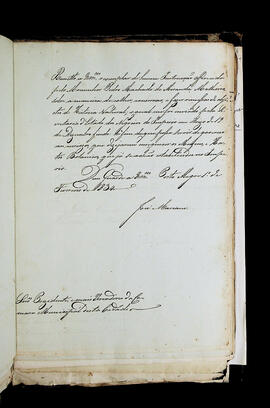 Remetto a Vmces o exemplar de huma Instrucção offerecida
pelo Marinheiro Pedro Machado de Miranda Malheiro
sobre a maneira de colher, conservar, e fazer remessas de obje
ctos de Historia Natural, a qual me foi enviada pela Se
cretaria d'Estado dos Negocios do Imperio em Aviso de 19
de Dezembro findo
as remessas, que dirigirem ao Museu, e
Horto Botanico, que já se achão estabelecidos no Impe
rio.
Deos Guarde a Vmces Porto Alegre 1º de
Fevereiro de 1834
José Mariani
Snrs Presidente e mais Vereadores da Ca
mara Municipal desta Cidade